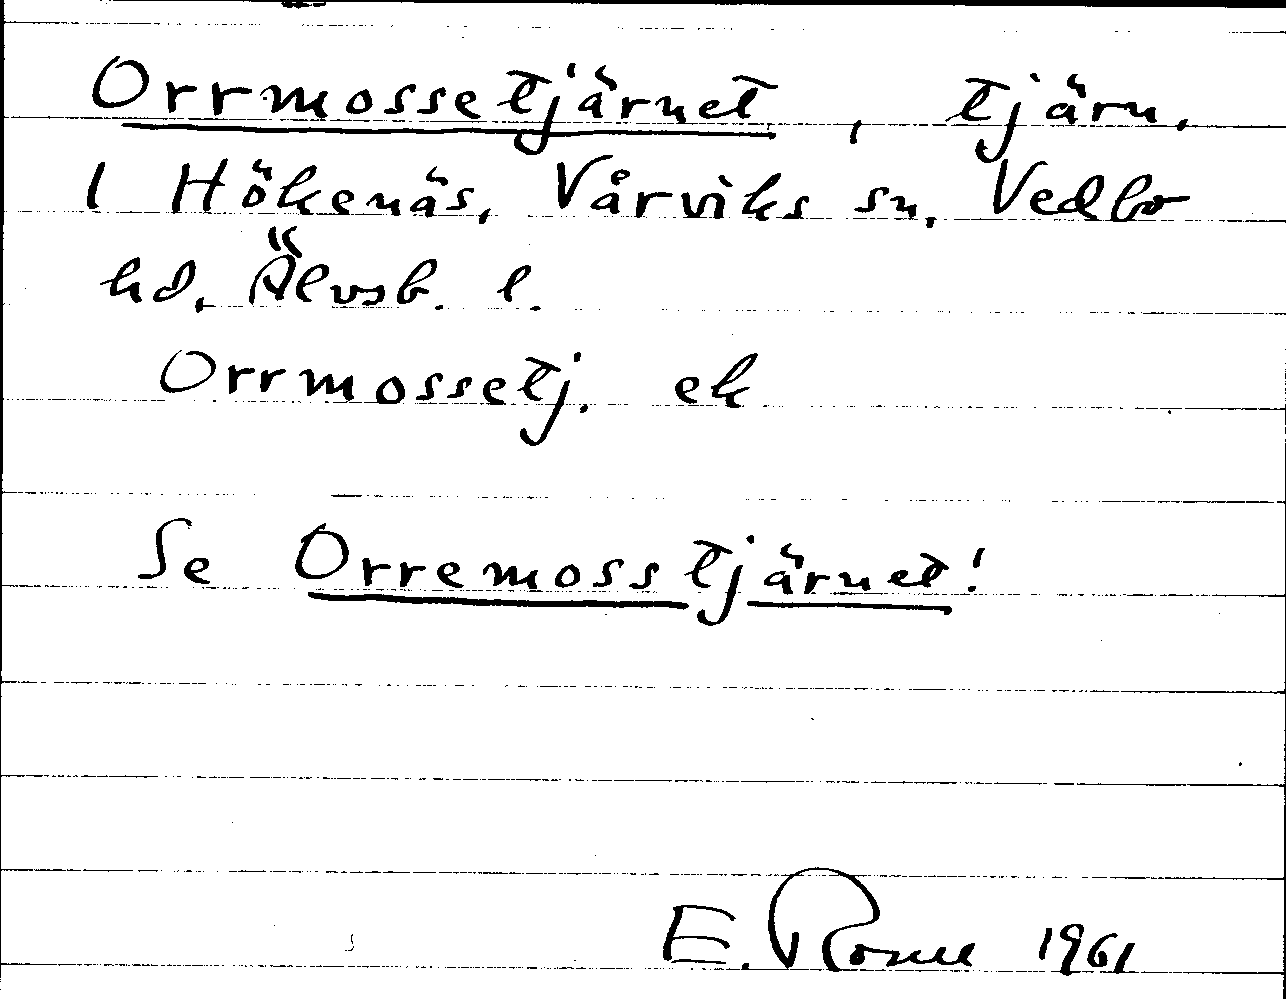 Orrmossetjärnet, tjärn.
I Hökenäs, Vårviks sn, Vedbo
hd, Älvsb. l.
Orrmossetj. ek
Se Orremosstjärnet!
E. 1961